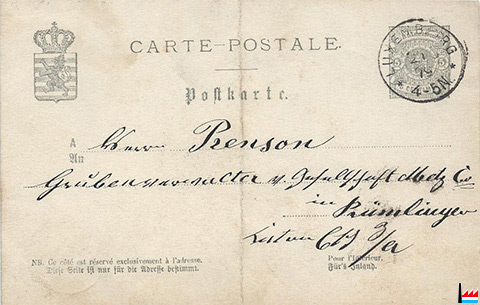 CARTE-POSTALE.
LUXEMBOURG
4-5N.
Postkarte.
A
An
Herrn Renson
Grubenverwalter v. Gesellschaft Metz Co
in
Rümlingen
NB. Ce côté est réservé exclusivement à l'adresse.
Diese Seite ist nur für die Adresse bestimmt.
Pour l'intérieur.
Für's Inland.